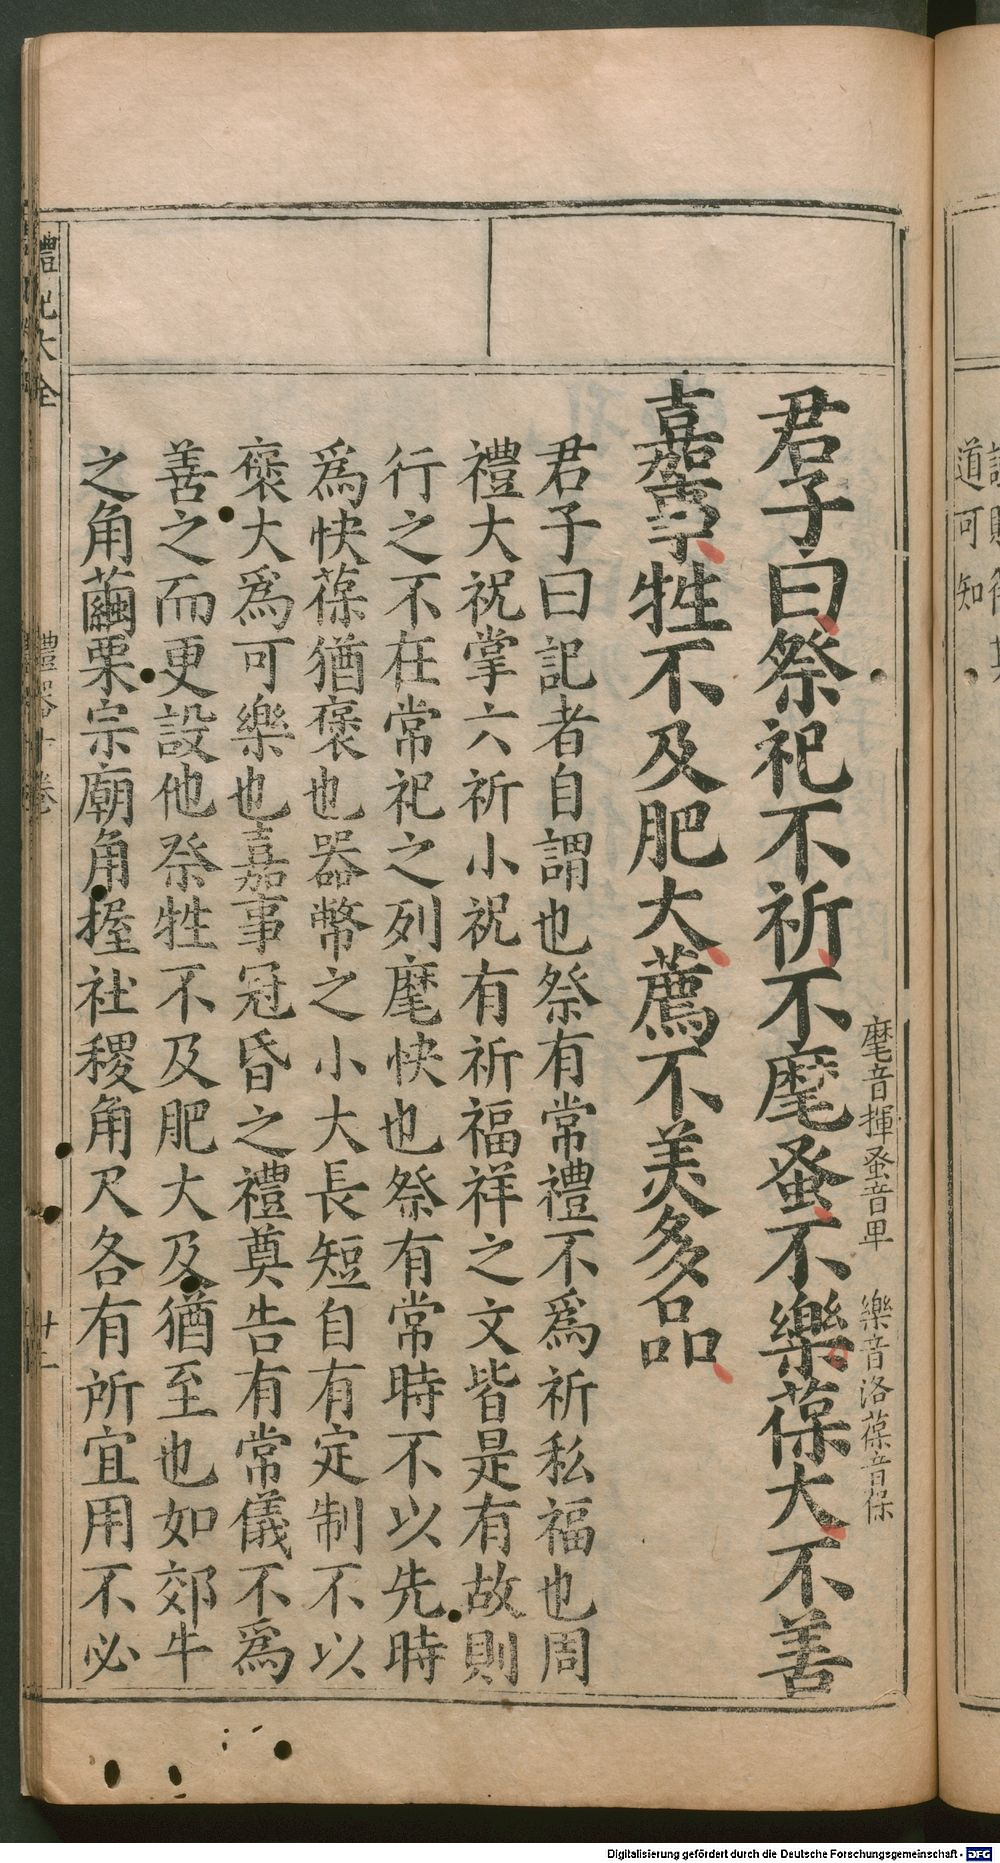 君子曰祭祀不祈不麾蚤不樂葆大不善
麾音揮蚤音早　樂音洛葆音保
嘉事牲不及肥大薦不美多品
君子曰記者自謂也祭有常禮不爲祈私福也周
禮大祝掌六祈小祝有祈福祥之文皆是有故則
行之不在常祀之列麾快也祭有常時不以先時
爲快葆猶褒也器幣之小大長短自有定制不以
褒大爲可樂也嘉事冠昏之禮奠告有常儀不爲
善之而更設他祭牲不及肥大及猶至也如郊牛
之角繭栗宗廟角握社稷角尺各有所宜用不必
禮記大全
禮器十卷
廿二
道可知
Digitalisierung gefördert durch die Deutsche Forschungsgemeinschaft - DFG